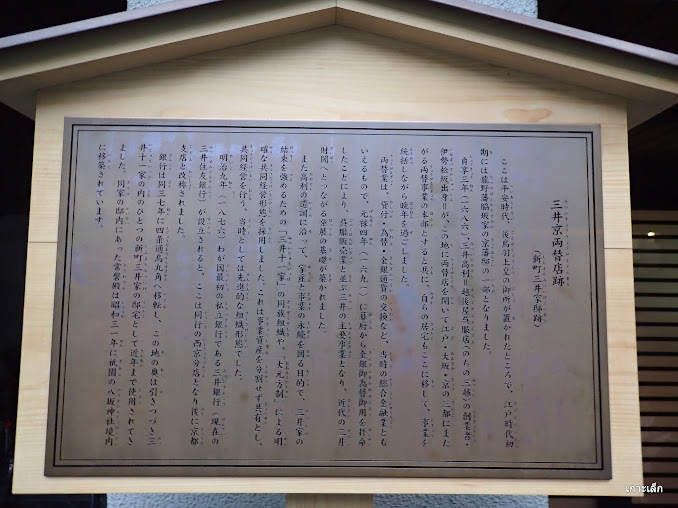 三井京両替店跡
(新町三井家邸跡)
ここは平安時代、後鳥羽上皇の御所が置かれたところで、江戸時代初
期には龍野藩脇坂家の京藩邸の一部となりました。
貞享三年(一六八六)三井高利=越後屋呉服店(のちの三越)の創業者・
伊勢松坂出身=が、この地に両替店を開いて江戸・大坂・京の三都にまた
がる両替事業の本部とすると共に、自らの居宅もここに移して、事業を
統括しながら晩年を過ごしました。
両替業は、貸付・為替・金銀通貨の交換など、当時の総合金融業とも
いえるもので、元禄四年(一六九一)に幕府から金銀御為替御用を拝命
したことにより、呉服販売業と並ぶ三井の主要事業となり、近代の三井
財閥へとつながる発展の基礎が築かれました。
また高利の遺訓に沿って、家産と事業の永続を図る目的で、三井家の
結束を強めるための「三井十一家」の同族組織や、「大元方制」による明
確な共同経営形態を採用しました。これは事業資産を分割せず共有とし、
共同経営を行う、当時としては先進的な組織形態でした。
明治九年(一八七六)わが国最初の私立銀行である三井銀行(現在の
三井住友銀行)が設立されると、ここは同行の西京分店となり後に京都
支店と改称されました。
銀行は同三七年に四条通烏丸角へ移転し、この地の奥は引きつづき三
井十一家の内のひとつの新町三井家の邸宅として近年まで使用されてき
ました。同家の邸内にあった常磐殿は昭和三一年に祇園の八坂神社境内
に移築されています。
เกาะเล็ก